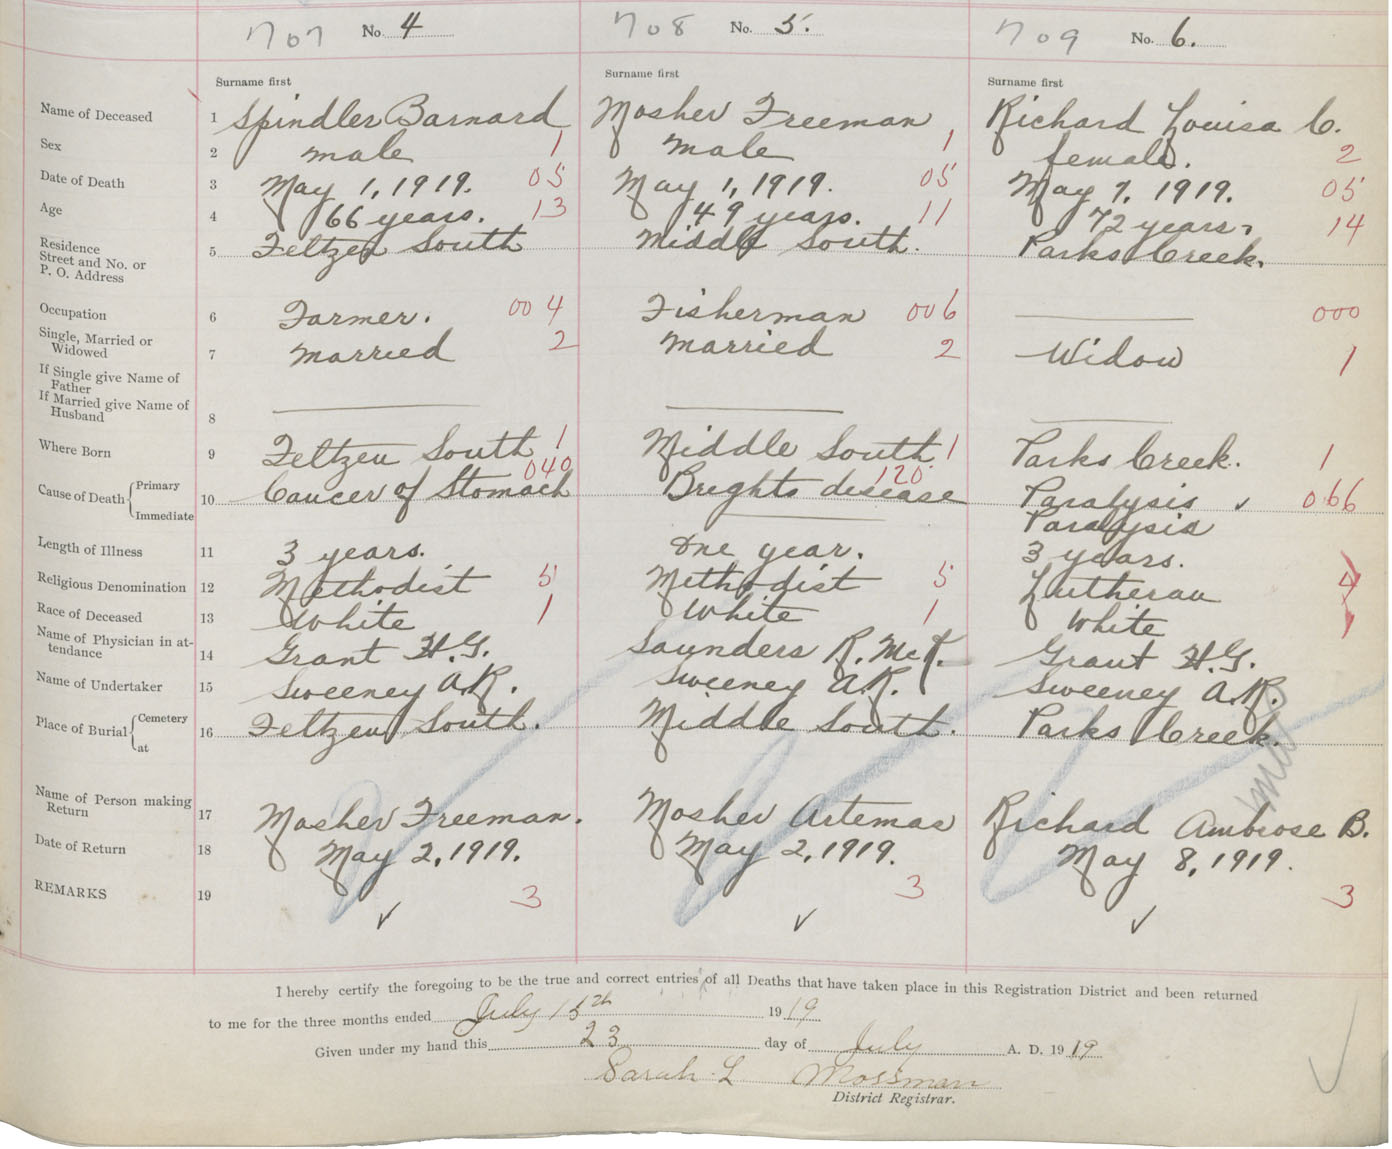 707 No. 4 708 No. 5. 709 No. 6.
Surname first Surname first Surname first
Name of Deceased 1 Spindler Barnard Mosher Freeman Richard Louisa C.
Sex 2 male 1 male 1 female. 2
Date of Death 3 May 1, 1919. 05 May 1, 1919. 05 May 7, 1919. 05
Age 4 66 years. 13 49 years. 11 72 years, 14
Residence
Street and No. or
P. O. Address 5 Feltzen South Middle South. Parks Creek.
Occupation 6 Farmer. 004 Fisherman 006 000
Single, Married or
Widowed 7 married 2 married 2 Widow 1
If Single give Name of
Father
If Married give Name of
Husband 8
Where Born 9 Feltzen South 1 Middle South. 1 Parks Creek. 1
Cause of Death { Primary 10 Cancer of Stomach 040 Brights disease 120 Paralysis 066
Immediate Paralysis
Length of Illness 11 3 years. One year. 3 years.
Religious Denomination 12 Methodist 5 Methodist 5 Lutheran 4
Race of Deceased 13 White 1 White 1 White 1
Name of Physician in at-
tendance 14 Grant H.G. Saunders R. McK. Grant H.G.
Name of Undertaker 15 Sweeney A.R. Sweeney A.R. Sweeney A.R.
Place of Burial { Cemetery
at 16 Feltzen South. Middle South. Parks Creek.
Name of Person making
Return 17 Mosher Freeman. Mosher Artemas Richard Ambrose B.
Date of Return 18 May 2, 1919. May 2, 1919. May 8, 1919.
REMARKS 19 3 3 3
I hereby certify the foregoing to be the true and correct entries of all Deaths that have taken place in this Registration District and been returned
to me for the three months ended July 15th 1919
Given under my hand this 23 day of July A. D. 1919
Sarah L Mossman
District Registrar.